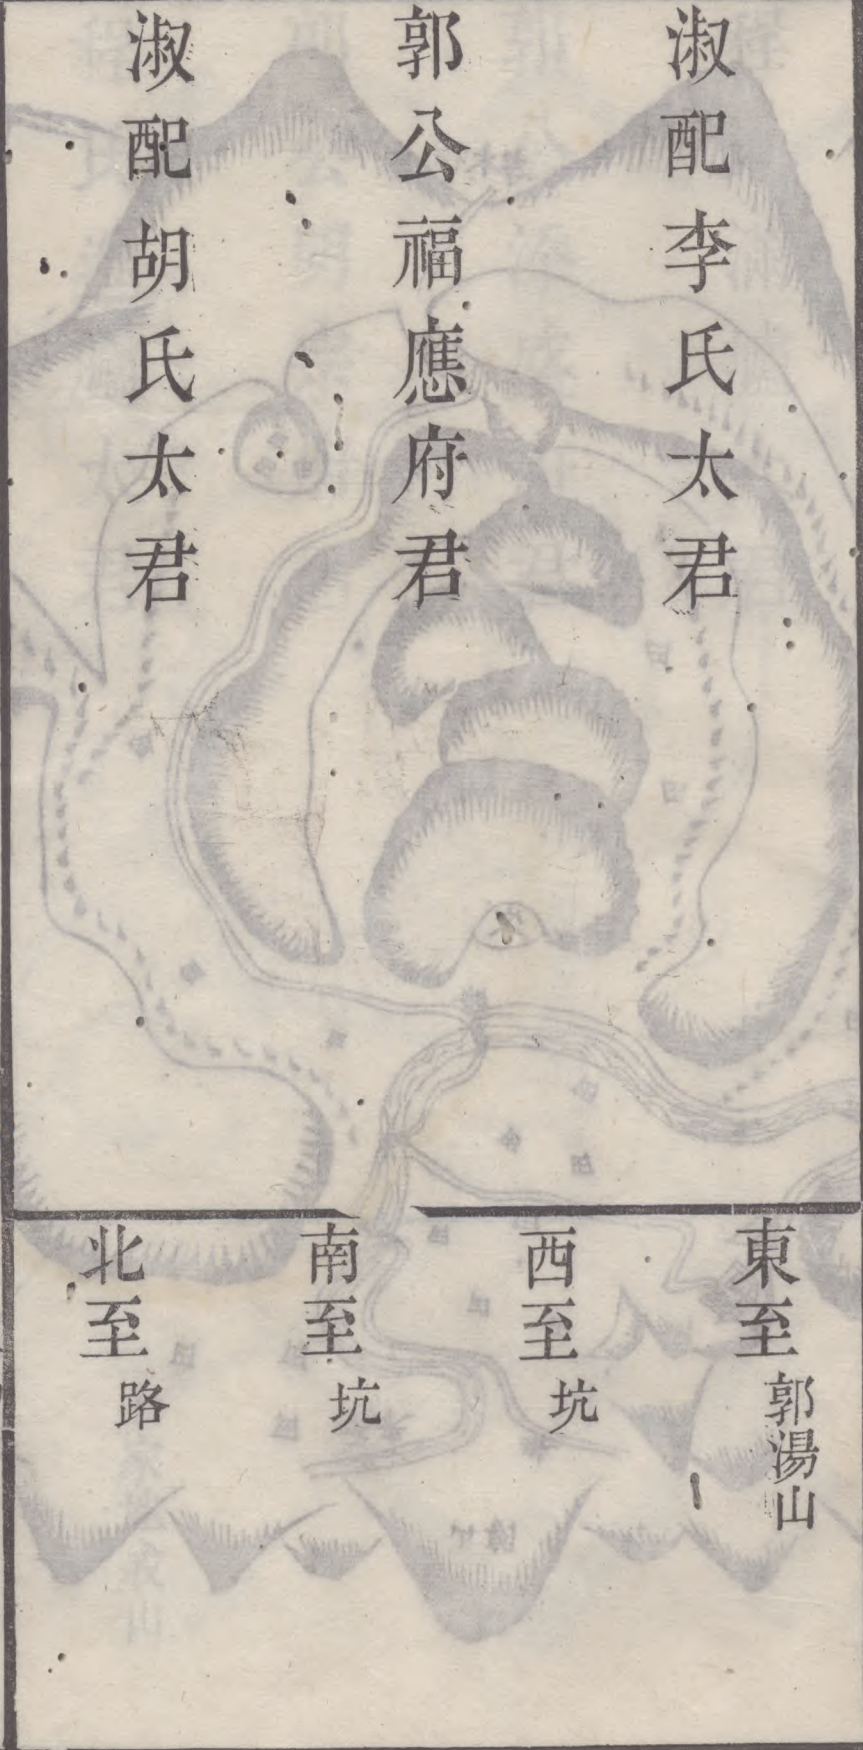 淑配李氏太君
郭公福應府君
淑配胡氏太君
東至郭湯山
西至坑
南至坑
北至路